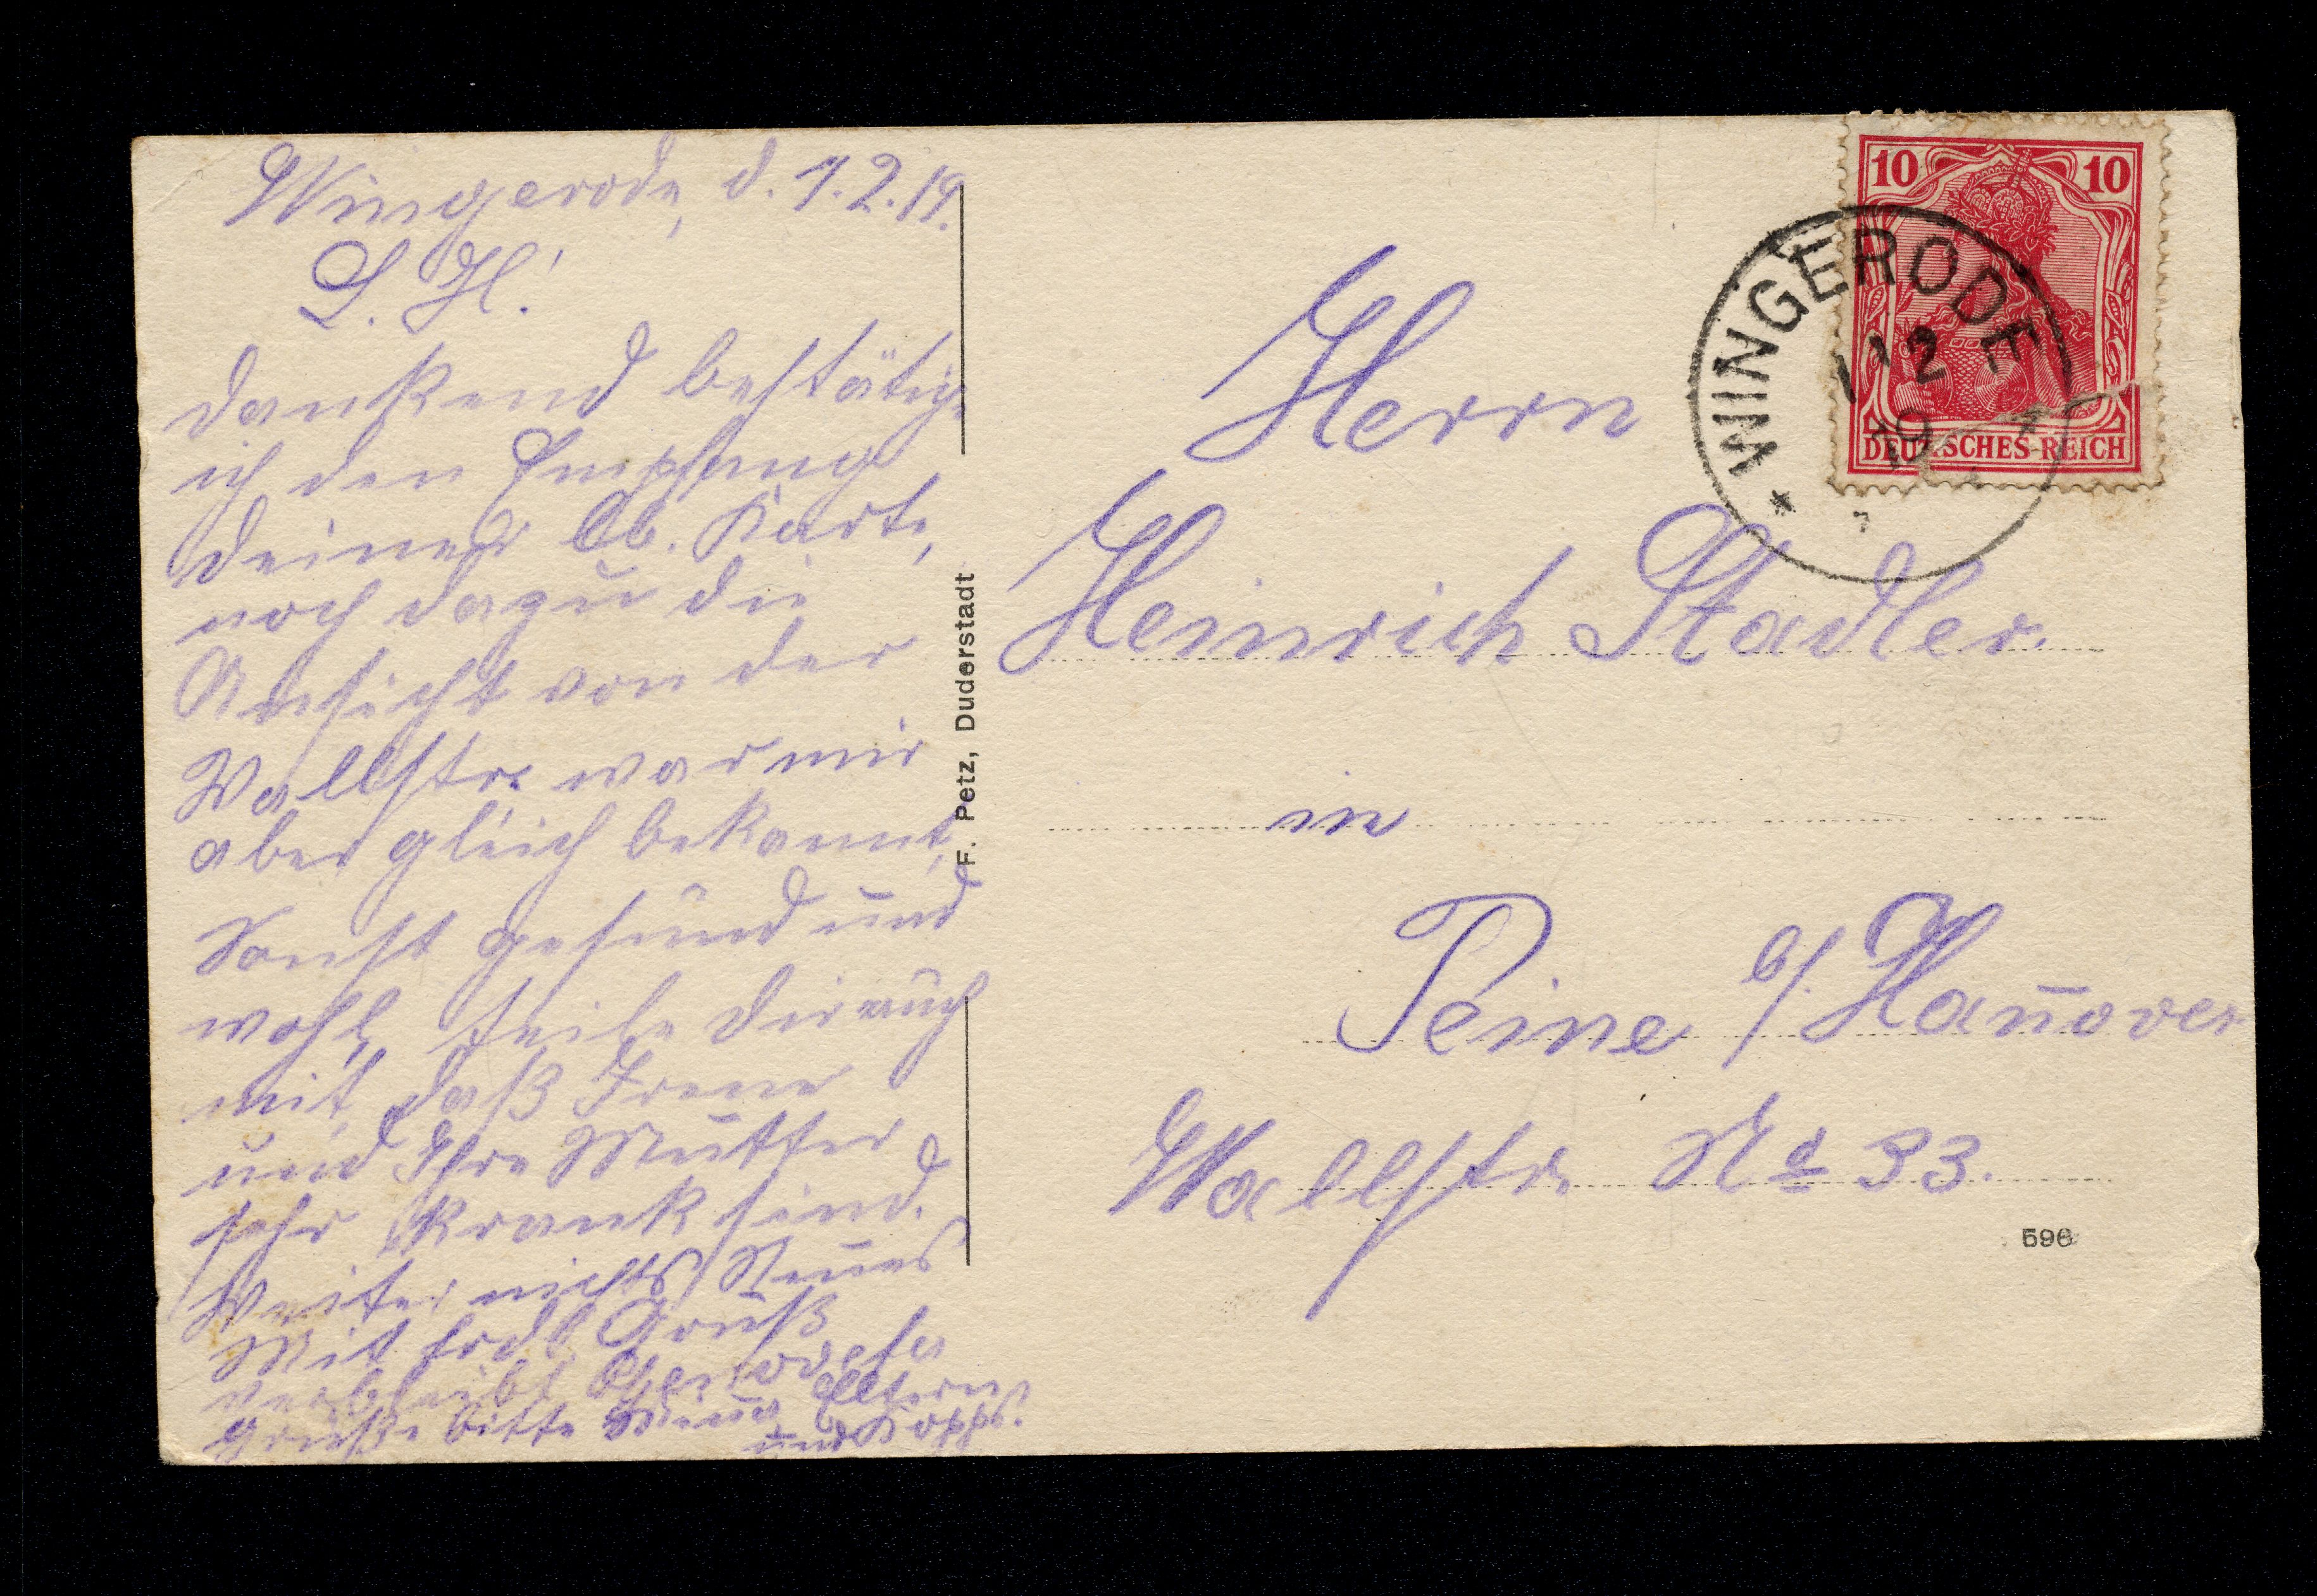 Wingerode, d. 1.2.19.
L. H!
Dankend bestätige
ich den Empfang
deiner lb. Karte,
noch dazu die
Ansicht von der
Wallstr. war mir
aber gleich bekannt,
Sonst gesund und
wohl, teile dir auch
mit, daß Irene
und Ihre Mutter
sehr krank sind.
Weiter nichts Neues
Mit frdl. Gruß
verbleibt
grüße bitte Eltern
und Kopps!
F. Petz, Duderstadt
10 10
DEUTSCHES REICH
* WINGERODE
1 2
19
Herrn
Heinrich Stadler.
in
Peine b/. Han̄over
Wallstr. No 33.
596